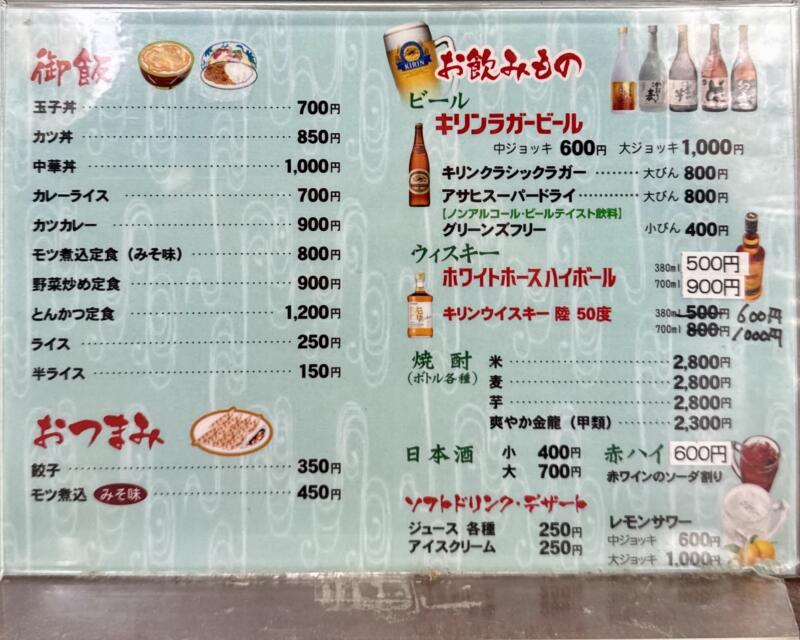 御飯
玉子丼 700円
カツ丼 850円
中華丼 1,000円
カレーライス 700円
カツカレー 900円
モツ煮込定食（みそ味） 800円
野菜炒め定食 900円
とんかつ定食 1,200円
ライス 250円
半ライス 150円
おつまみ
餃子 350円
モツ煮込 みそ味 450円
KIRIN
お飲みもの
ビール
キリンラガービール
中ジョッキ 600円 大ジョッキ 1,000円
キリンクラシックラガー 大びん 800円
アサヒスーパードライ 大びん 800円
【ノンアルコール・ビールテイスト飲料】
グリーンズフリー 小びん 400円
ウィスキー
ホワイトホースハイボール
380ml 500円
700ml 900円
キリンウイスキー 陸 50度
380ml 500円 600円
700ml 800円 1000円
焼酎
（ボトル各種）
米 2,800円
麦 2,800円
芋 2,800円
爽やか金龍（甲類） 2,300円
日本酒
小 400円
大 700円
赤ハイ 600円
赤ワインのソーダ割り
ソフトドリンク・デザート
ジュース 各種 250円
アイスクリーム 250円
レモンサワー
中ジョッキ 600円
大ジョッキ 1,000円